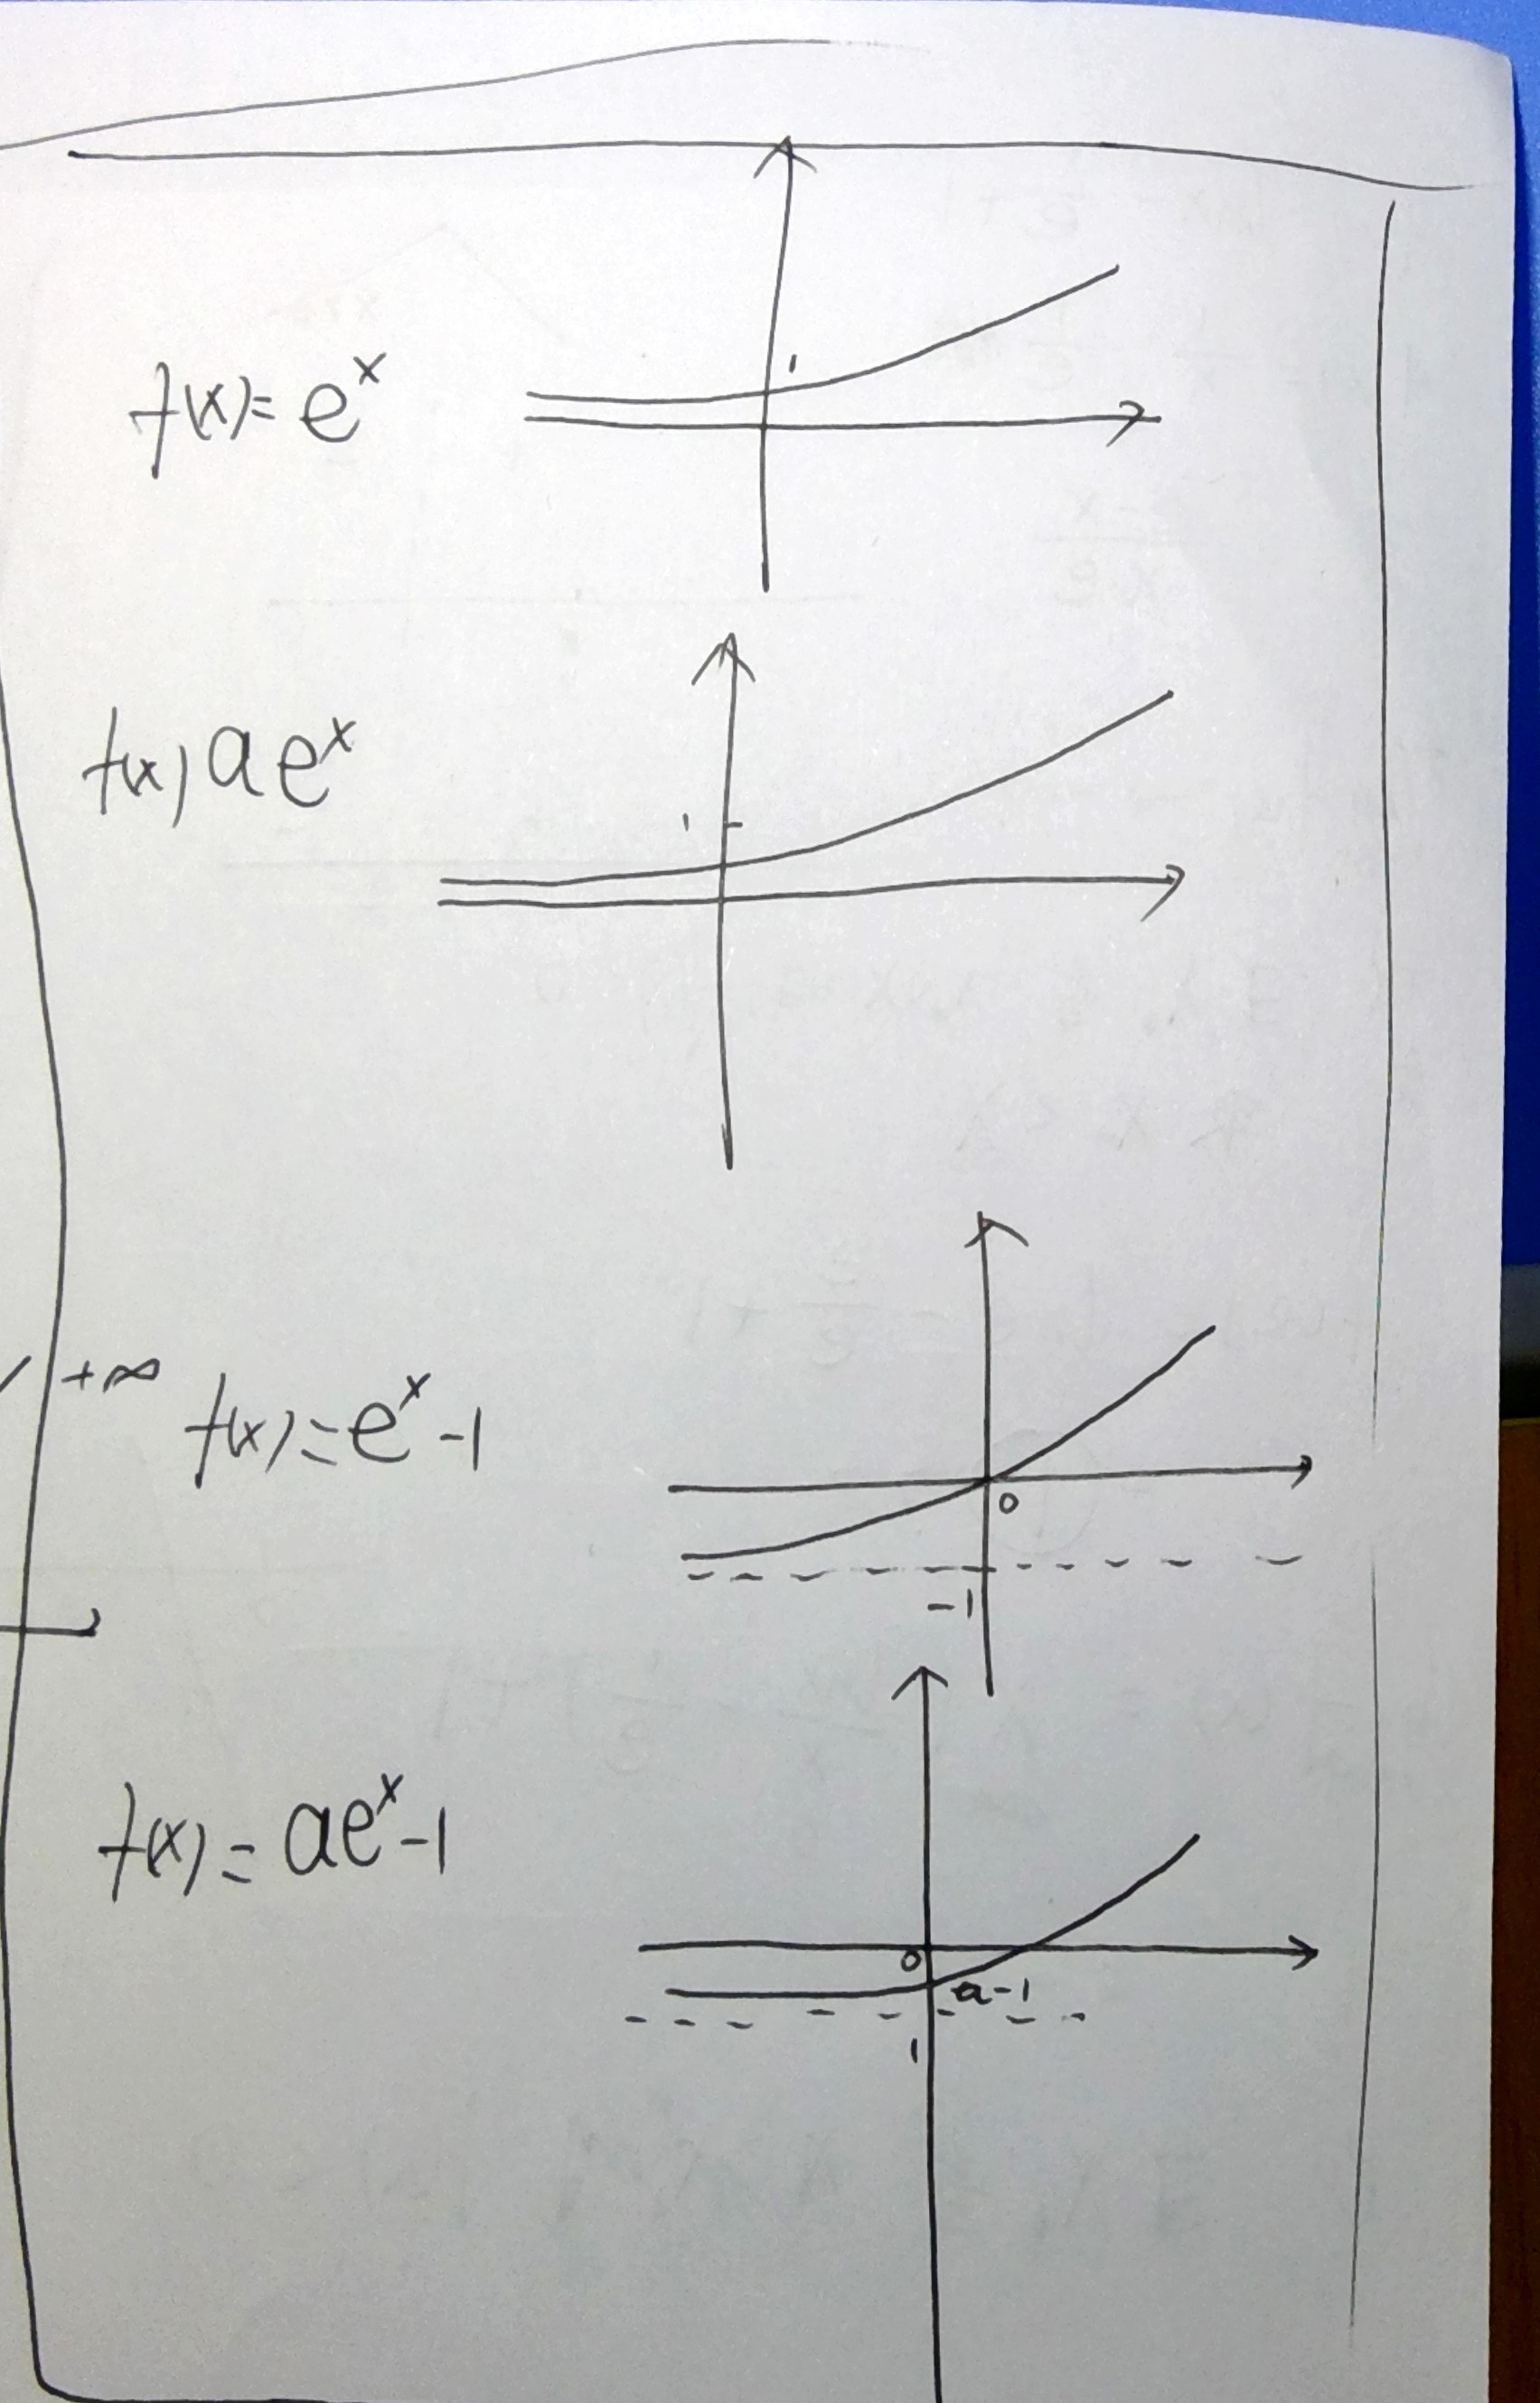 f(x)=e^x
1
f(x) ae^x
1
+∞
f(x)=e^x-1
0
-1
f(x)=ae^x-1
0
a-1
1